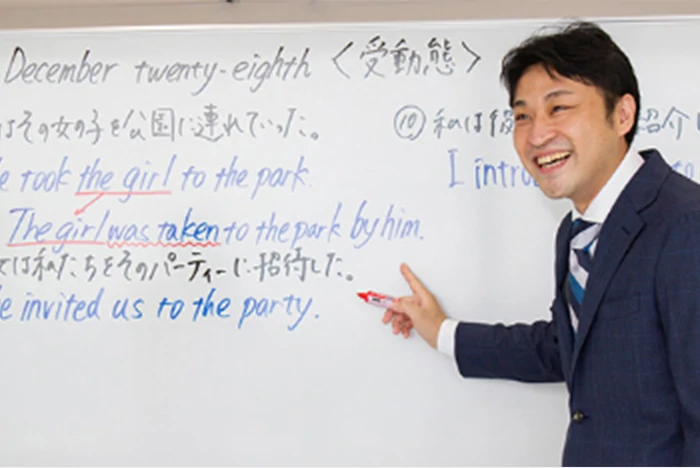 December twenty-eighth 〈受動態〉
はその女の子を公園に連れていった。
took the girl to the park.
The girl was taken to the park by him.
は私たちをそのパーティーに招待した。
invited us to the party.
⑩ 私は
紹介
I
to